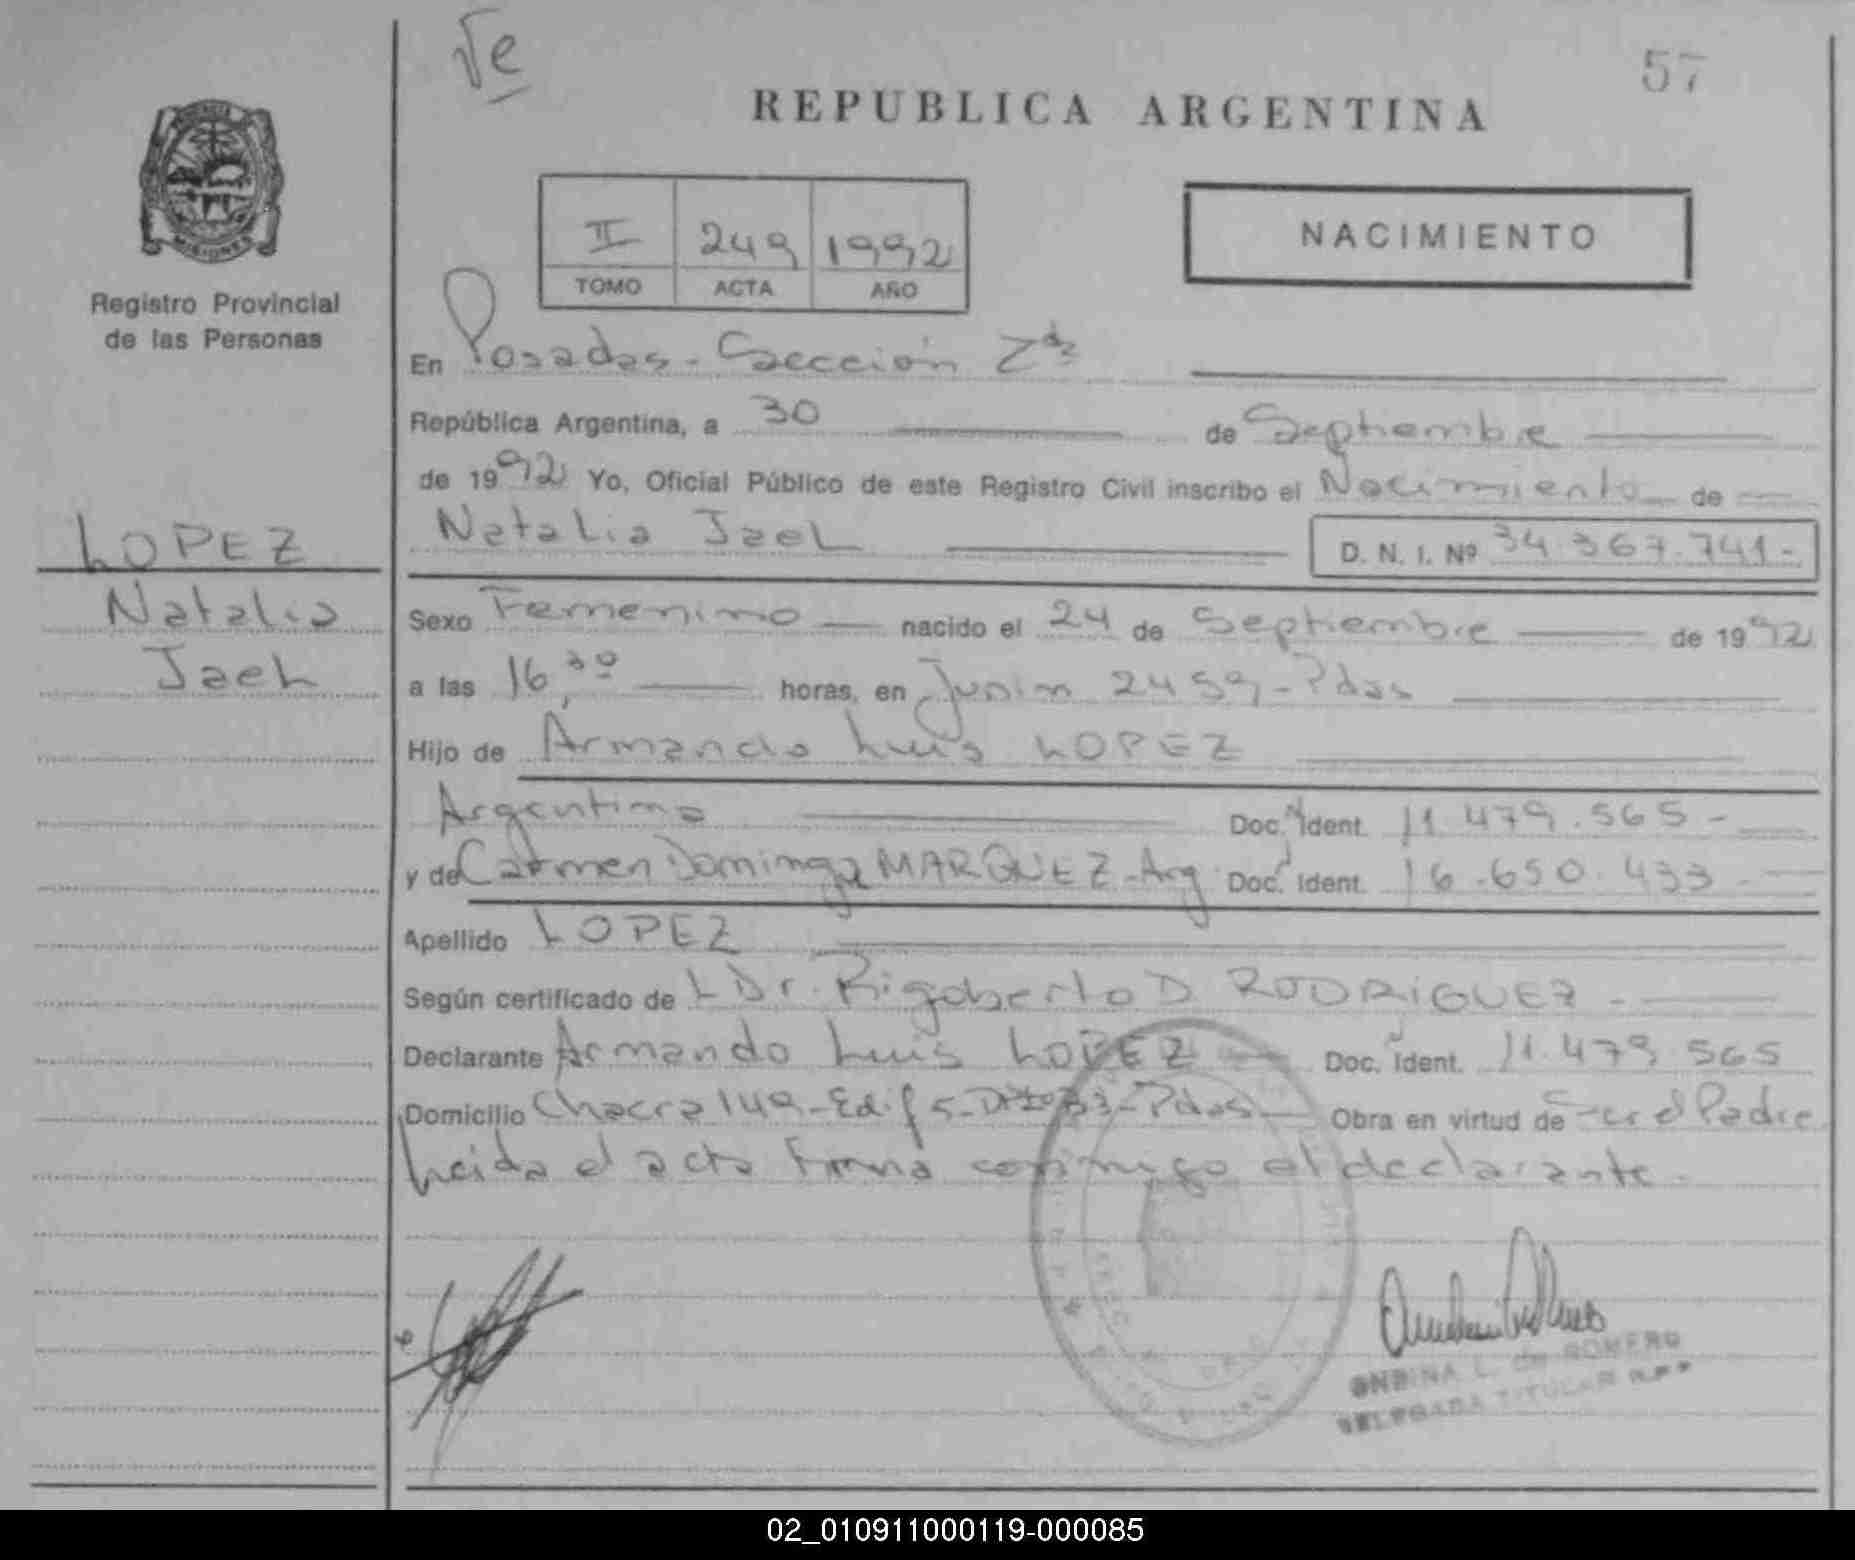 Ve
57
REPUBLICA ARGENTINA
MISIONES
Registro Provincial
de las Personas
II 249 1992
TOMO ACTA AÑO
NACIMIENTO
En Posadas - Sección 2da
República Argentina, a 30 de Septiembre
de 1992 Yo, Oficial Público de este Registro Civil inscribo el Nacimiento de
Natalia Jael D. N. I. Nº 34.367.741-
LOPEZ
Natalia
Jael
Sexo Femenino nacido el 24 de Septiembre de 1992
a las 16,30 horas, en Junin 2459 - Pdas
Hijo de Armando Luis LOPEZ
Argentino Doc. Ident. 11.479.565-
y de Carmen Dominga MARQUEZ - Arg Doc. Ident. 16.650.433-
Apellido LOPEZ
Según certificado de L Dr. Rigoberto D RODRIGUEZ -
Declarante Armando Luis LOPEZ Doc. Ident. 11.479.565
Domicilio Chacra 149 - Edif 5 - 33 - Pdas Obra en virtud de Ser el Padre
Leida el acta Firma conmigo el declarante.
ONDINA L. de ROMERO
DELEGADA TITULAR R.P.P
02_010911000119-000085